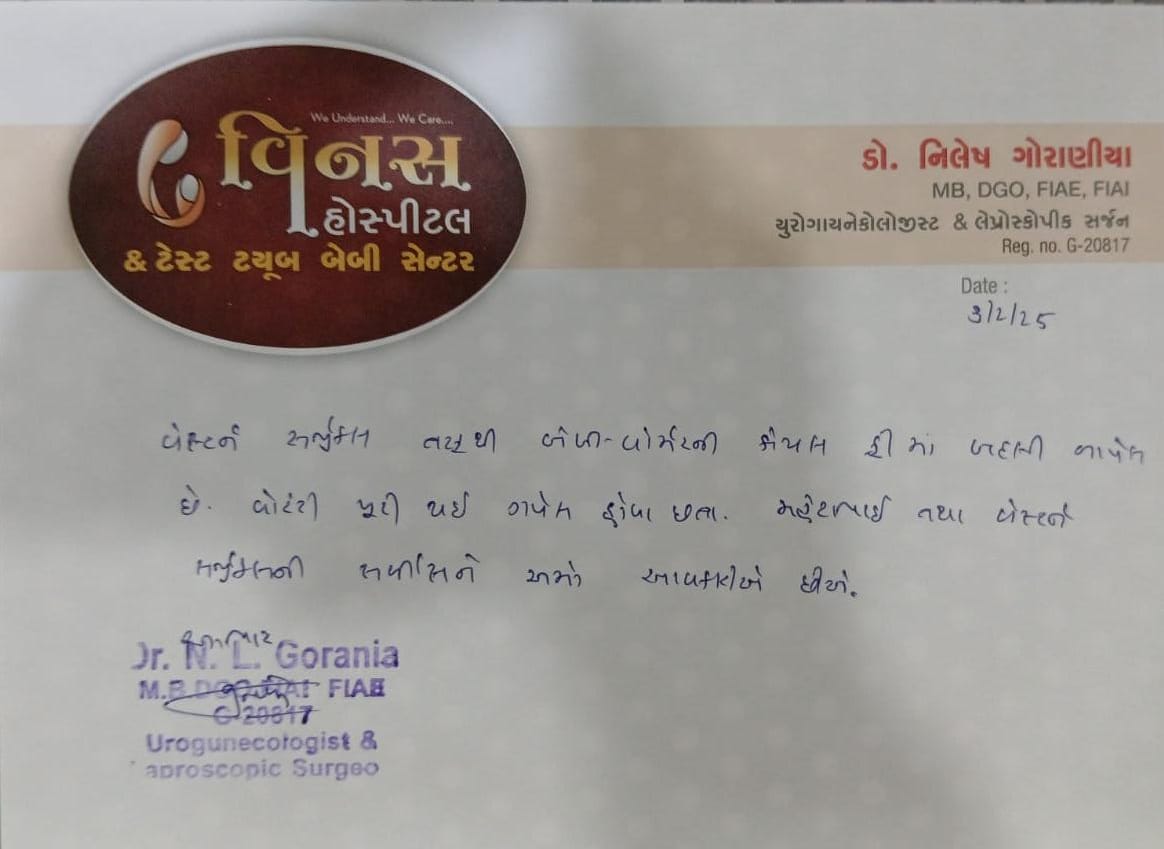 We Understand... We Care....
વિનસ
હોસ્પીટલ
& ટેસ્ટ ટયૂબ બેબી સેન્ટર
ડો. નિલેષ ગોરાણીયા
MB, DGO, FIAE, FIAI
યુરોગાયનેકોલોજીસ્ટ & લેપ્રોસ્કોપીક સર્જન
Reg. no. G-20817
Date :
3/2/25
વેસ્ટર્ન સર્જીકલ તરફથી બેબી-વોર્મરની ફ્રી માં બદલી આપેલ
છે. વોરંટી પૂરી થઈ ગયેલ હોવા છતા. તથા વેસ્ટર્ન
સર્જીકલની સર્વિસને અમો છીએ.
આભાર
Dr. N. L. Gorania
FIAE
G-20817
Urogunecologist &
aproscopic Surgeo